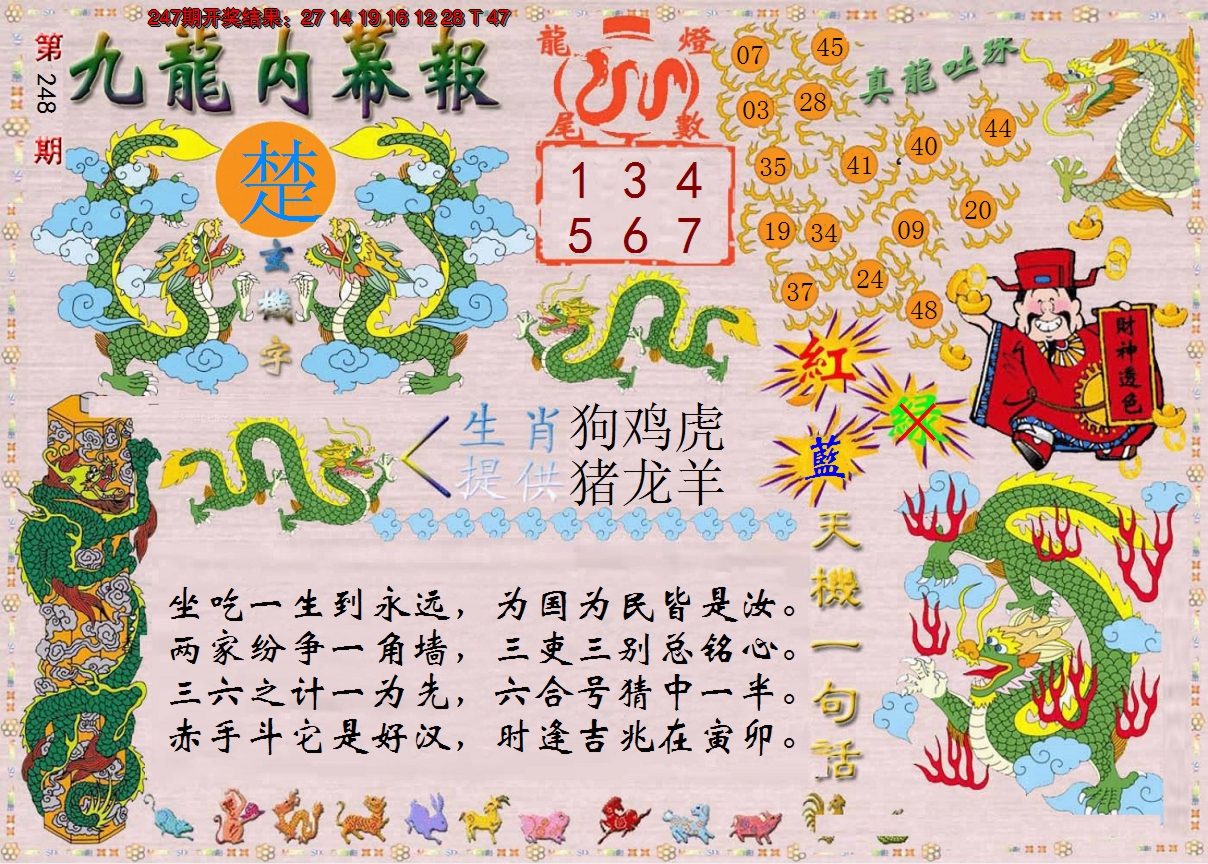 247期开奖结果：27 14 19 16 12 28 T 47
第248期
九龍内幕報
楚
玄機字
龍燈
尾數
1 3 4
5 6 7
真龍吐珠
07
45
03
28
44
40
35
41
20
19
34
09
24
37
48
財神透色
紅
绿
藍
生肖 狗鸡虎
提供 猪龙羊
天機一句話
坐吃一生到永远，为国为民皆是汝。
两家纷争一角墙，三吏三别总铭心。
三六之计一为先，六合号猜中一半。
赤手斗它是好汉，时逢吉兆在寅卯。